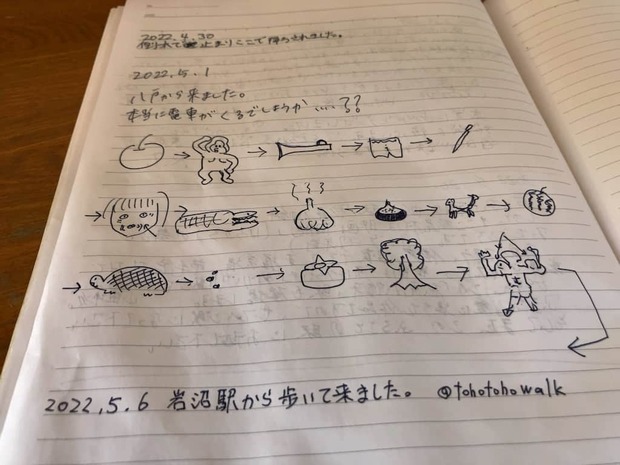 2022.4.30
倒れて止まりここで降ろされました。
2022.5.1
八戸から来ました。
本当に電車がくるでしょうか……??
2022.5.6 岩沼駅から歩いて来ました。 @tohotohowalk